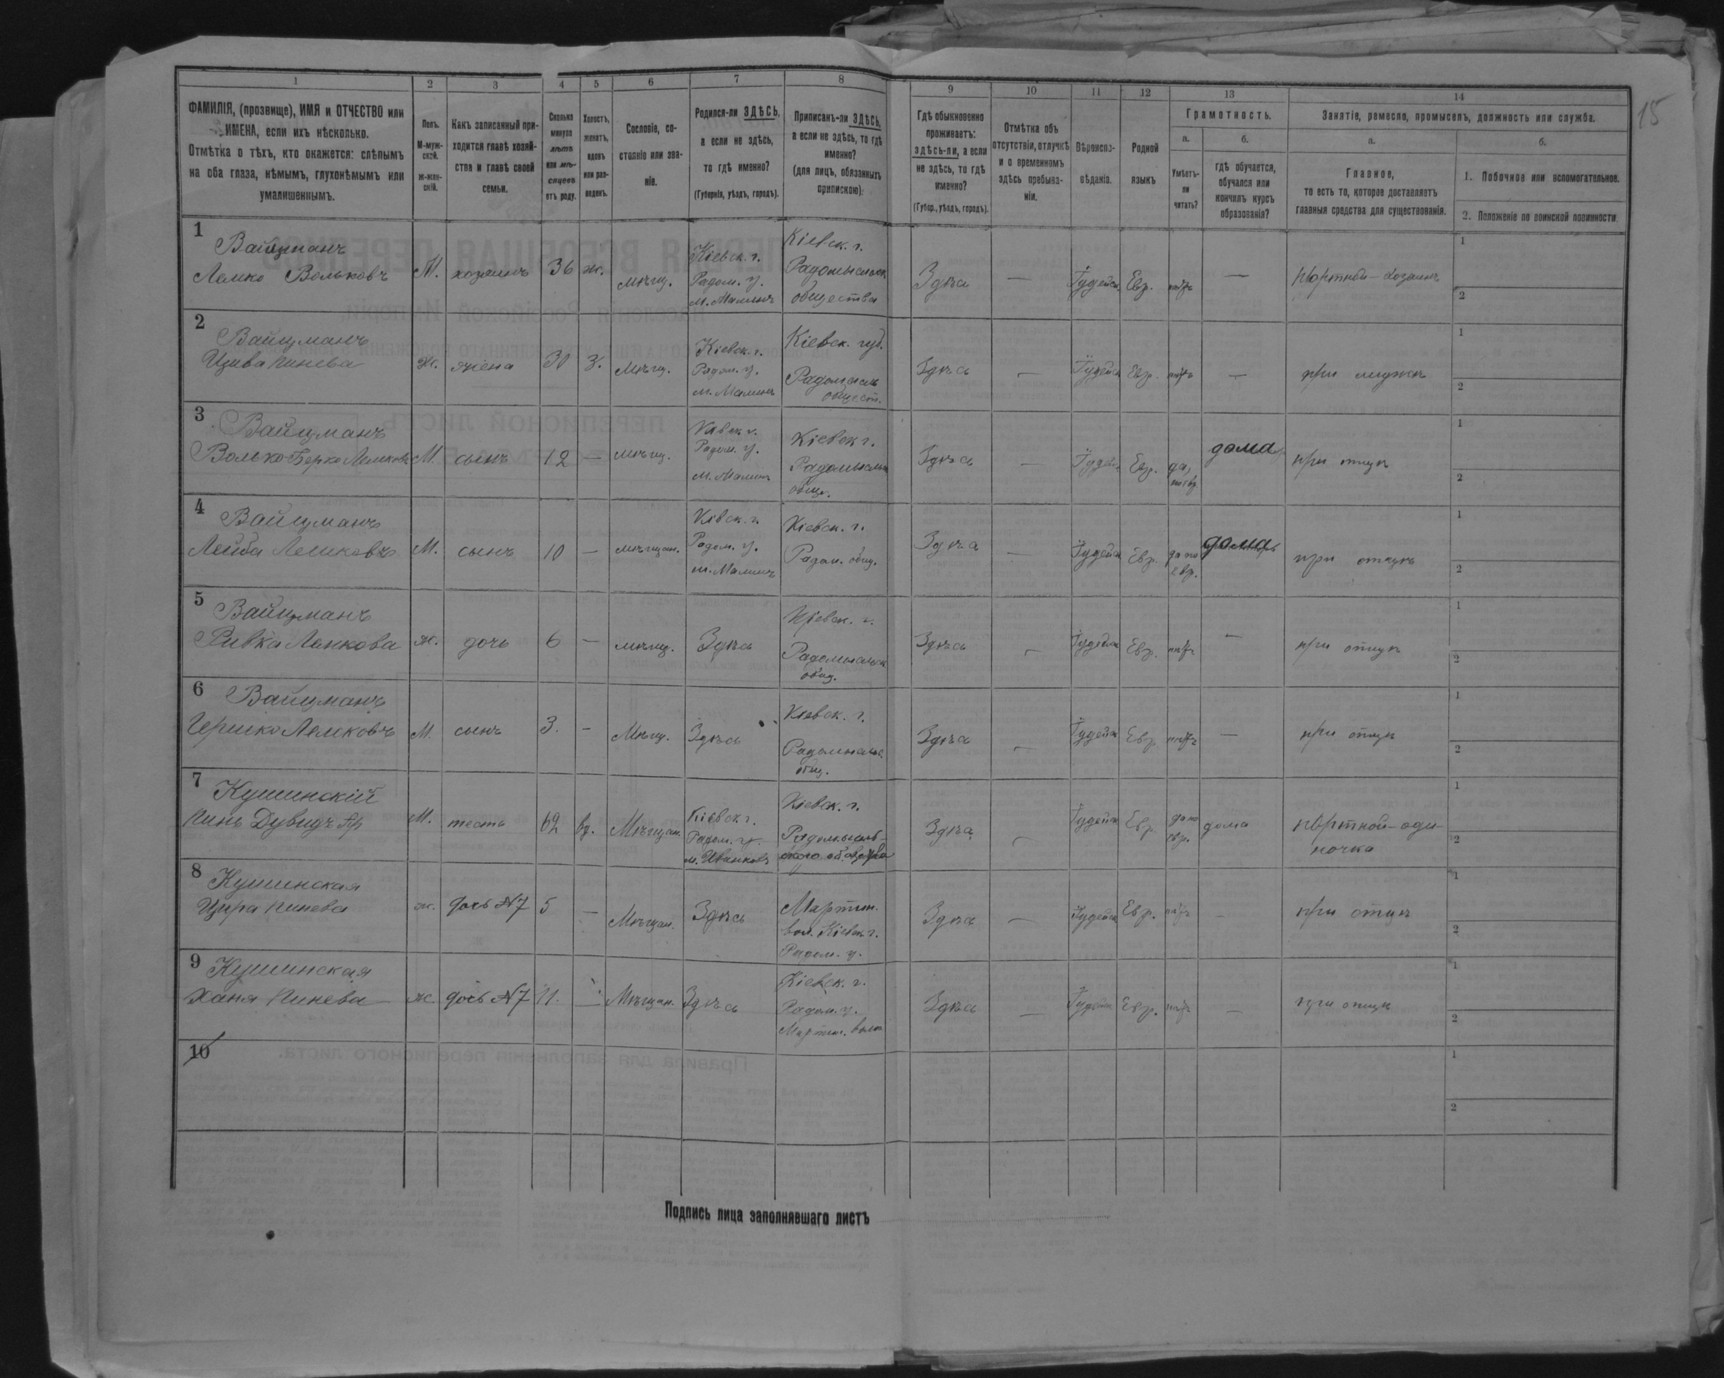 15
1 2 3 4 5 6 7 8 9 10 11 12 13 14
ФАМИЛІЯ, (прозвище), ИМЯ и ОТЧЕСТВО или
ИМЕНА, если ихъ нѣсколько.
Отмѣтка о тѣхъ, кто окажется: слѣпымъ
на оба глаза, нѣмымъ, глухонѣмымъ или
умалишеннымъ.
Полъ.
М-муж-
ской.
Ж-жен-
скій.
Какъ записанный при-
ходится главѣ хозяй-
ства и главѣ своей
семьи.
Сколько
минуло
лѣтъ
или мѣ-
сяцевъ
отъ роду.
Холостъ,
женатъ,
вдовъ
или раз-
веденъ.
Сословіе, со-
стояніе или зва-
ніе.
Родился-ли ЗДѢСЬ,
а если не здѣсь,
то гдѣ именно?
(Губернія, уѣздъ, городъ).
Приписанъ-ли ЗДѢСЬ,
а если не здѣсь, то гдѣ
именно?
(для лицъ, обязанныхъ
припискою).
Гдѣ обыкновенно
проживаетъ:
здѣсь-ли, а если
не здѣсь, то гдѣ
именно?
(Губер., уѣздъ, городъ).
Отмѣтка объ
отсутствіи, отлучкѣ
и о временномъ
здѣсь пребыва-
ніи.
Вѣроиспо-
вѣданіе.
Родной
языкъ
Грамотность.
а.
Умѣетъ-
ли
читать?
б.
гдѣ обучается,
обучался или
кончилъ курсъ
образованія?
Занятіе, ремесло, промыселъ, должность или служба.
а.
Главное,
то есть то, которое доставляетъ
главныя средства для существованія.
б.
1. Побочное или вспомогательное.
2. Положеніе по воинской повинности.
1
Вайцманъ
Лемко Вольковъ М. хозяинъ 36 ж. мѣщ.
Кіевск. г.
Радом. у.
м. Малинъ
Кіевск. г.
общества
Здѣсь — Іудейск. Евр. — портной-хозяинъ
1
2
2
Вайцманъ
Цива Пинева ж. жена 30 З. мѣщ.
Кіевск. г.
Радом. у.
м. Малинъ
Кіевск. губ.
Радомысл.
общест.
Здѣсь — Іудейск Евр. — при мужѣ
1
2
3
Вайцманъ
Волько-Берко Лемковъ М. сынъ 12 — мѣщ.
Кіевск г.
Радом. у.
м. Малинъ
Кіевск г.
общ.
Здѣсь — Іудейс. Евр. да, дома при отцѣ
1
2
4
Вайцманъ
Лейба Лемковъ М. сынъ 10 — мѣщан.
Кіевск. г.
Радом. у.
м. Малинъ
Кіевск. г.
Радом. общ.
Здѣсь — Іудейск Евр. да по
евр. дома при отцѣ
1
2
5
Вайцманъ
Ривка Лемкова ж. дочь 6 — мѣщ. Здѣсь
Кіевск. г.
общ.
Здѣсь — Іудейск Евр. — при отцѣ
1
2
6
Вайцманъ
Гершко Лемковъ М. сынъ 3. — Мѣщ. Здѣсь
Кіевск. г.
общ.
Здѣсь — Іудейск Евр. — при отцѣ
1
2
7
Кушинскій
Пинь Дувидъ М. тесть 62 вд. Мѣщан.
Кіевск г.
Радом. у.
м. Иванковъ
Кіевск. г.
Радомысль-
скаго общества
Здѣсь — Іудейск Евр. да по
евр. дома портной-оди-
ночка
1
2
8
Кушинская
Цира Пинева ж. дочь №7 5 — Мѣщан. Здѣсь
Мартин.
вол. Кіевск г.
Радом. у.
Здѣсь — Іудейск Евр. — при отцѣ
1
2
9
Кушинская
Хана Пинева ж. дочь №7 11. — Мѣщан. Здѣсь
Кіевск. г.
Радом. у.
Мартин. вол.
Здѣсь — Іудейск Евр. — при отцѣ
1
2
10
1
2
Подпись лица заполнявшаго листъ